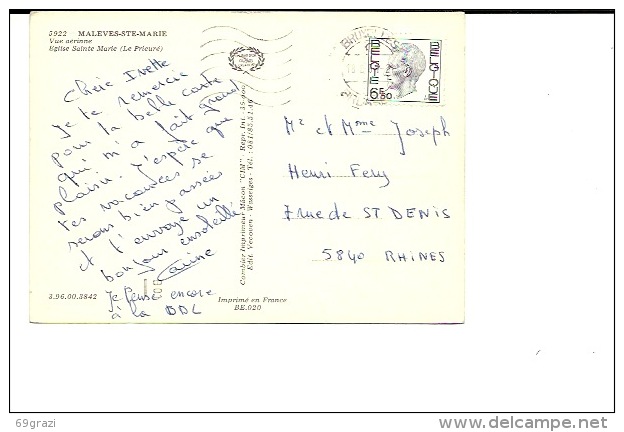 5922 - MALEVES-STE-MARIE
Vue aérinne
Eglise Sainte Marie (Le Prieuré)
Chère Ivette
Je te remercie
pour la belle carte
qui m'a fait grand
plaisir. J'espère que
tes vacances se
serons bien passées
et t'envoye un
bonjour ensoleillé
Je pense encore
à la
3.96.00.3842
Combier Imprimeur Mâcon "CIM"
Edit. Vercoven - Wasseiges - Tél.
Imprimé en France
BE.020
BELGIE
BELGIQUE
6F50
Mr et Mme Joseph
Henri Fery
7 rue de ST DENIS
5840 RHINES
69grazi
delcampe.net